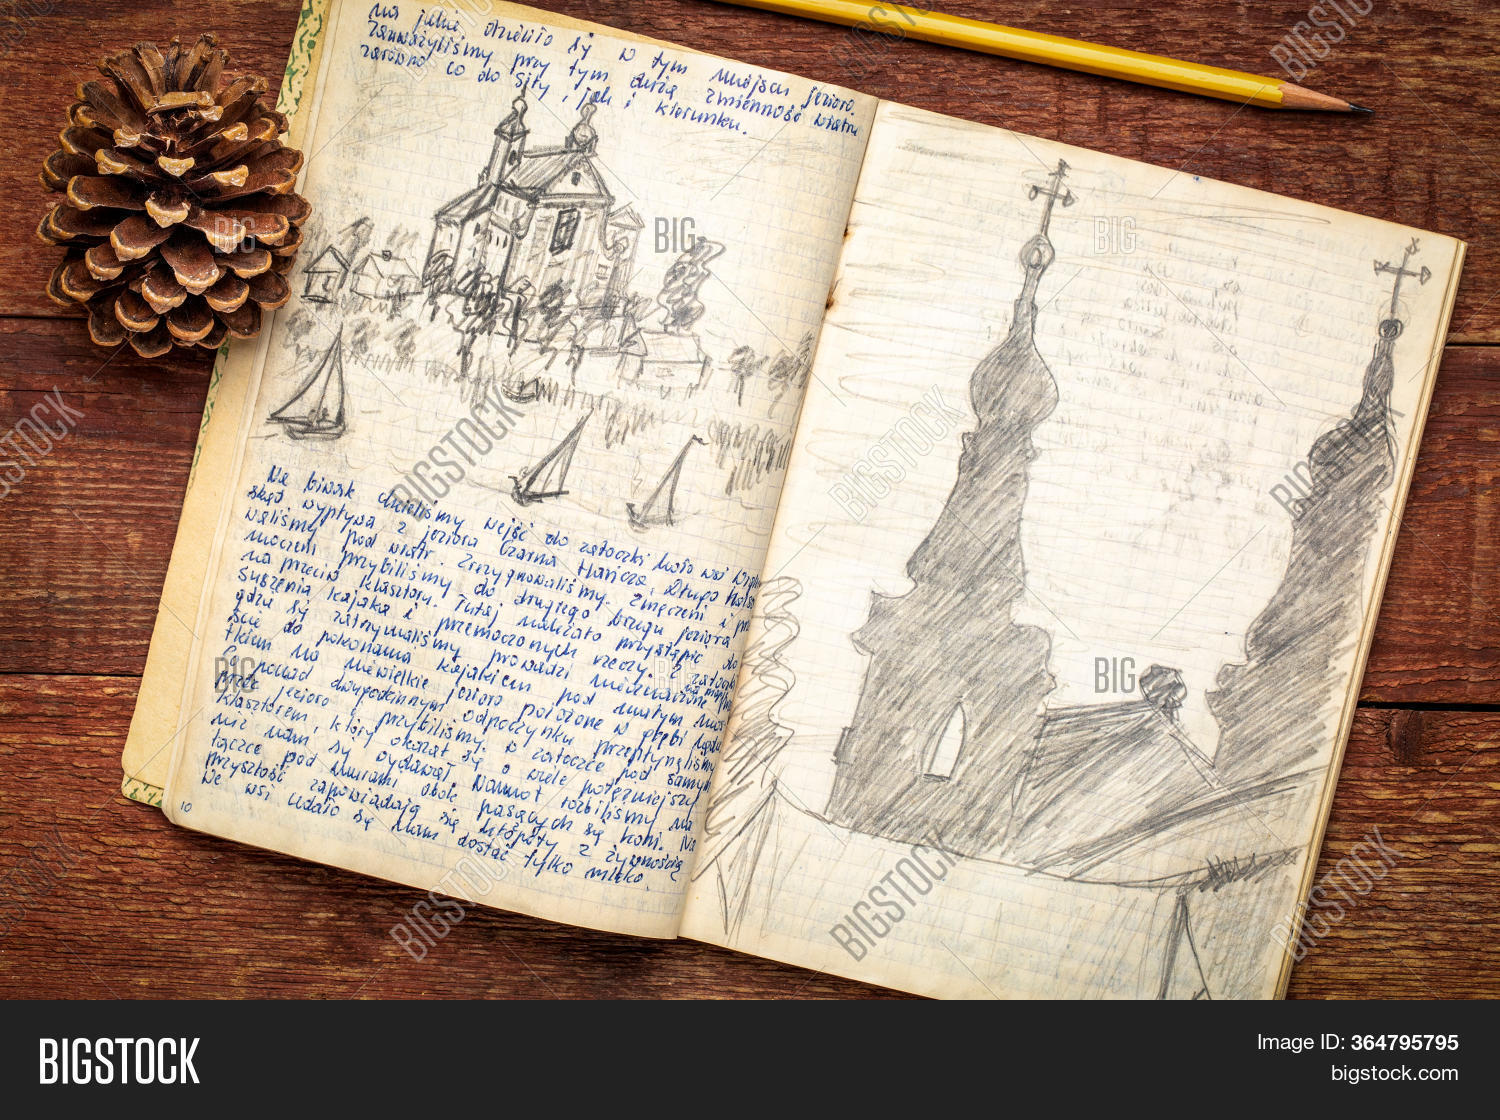 na jakie dzieliło się w tym miejscu jezioro.
Zauważyliśmy przy tym dużą zmienność wiatru
zarówno co do siły, jak i kierunku.
Na biwak chcieliśmy wejść do zatoczki koło wsi
skąd wypływa z jeziora Czarna Hańcza. Długo
waliśmy pod wiatr. Zrezygnowaliśmy. Zmęczeni i
moczeni przybiliśmy do drugiego brzegu jeziora
na przeciw klasztoru. Tutaj należało przystąpić do
suszenia kajaka i przemoczonych rzeczy. Z zatoczki
gdzie się zatrzymaliśmy prowadzi
ście do pokonania kajakiem pod
tkiem na niewielkie jezioro położone w głębi lądu.
Po ponad dwugodzinnym odpoczynku przepłynęliśmy
przez jezioro i przybiliśmy w zatoczce pod samym
klasztorem, który okazał się o wiele potężniejszy
niż nam się wydawał. Namiot rozbiliśmy na
łączce pod murami obok pasących się koni. Na
przyszłość zapowiadają się kłopoty z żywnością
We wsi udało się nam dostać tylko mleko.
10
BIGSTOCK
Image ID: 364795795
bigstock.com